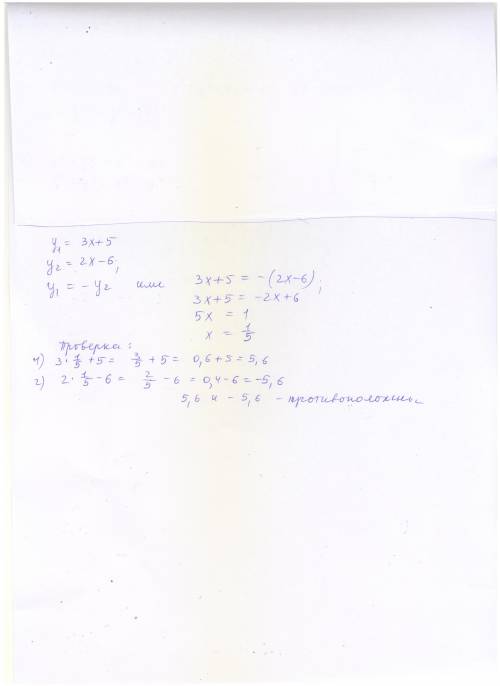 y₁ = 3x+5
y₂ = 2x-6;
y₁ = - y₂ или 3x+5 = -(2x-6);
3x+5 = -2x+6
5x = 1
x = 1/5
Проверка:
1) 3·1/5+5= 3/5+5= 0,6+5=5,6
2) 2·1/5-6= 2/5-6=0,4-6=-5,6
5,6 и -5,6 - противоположны